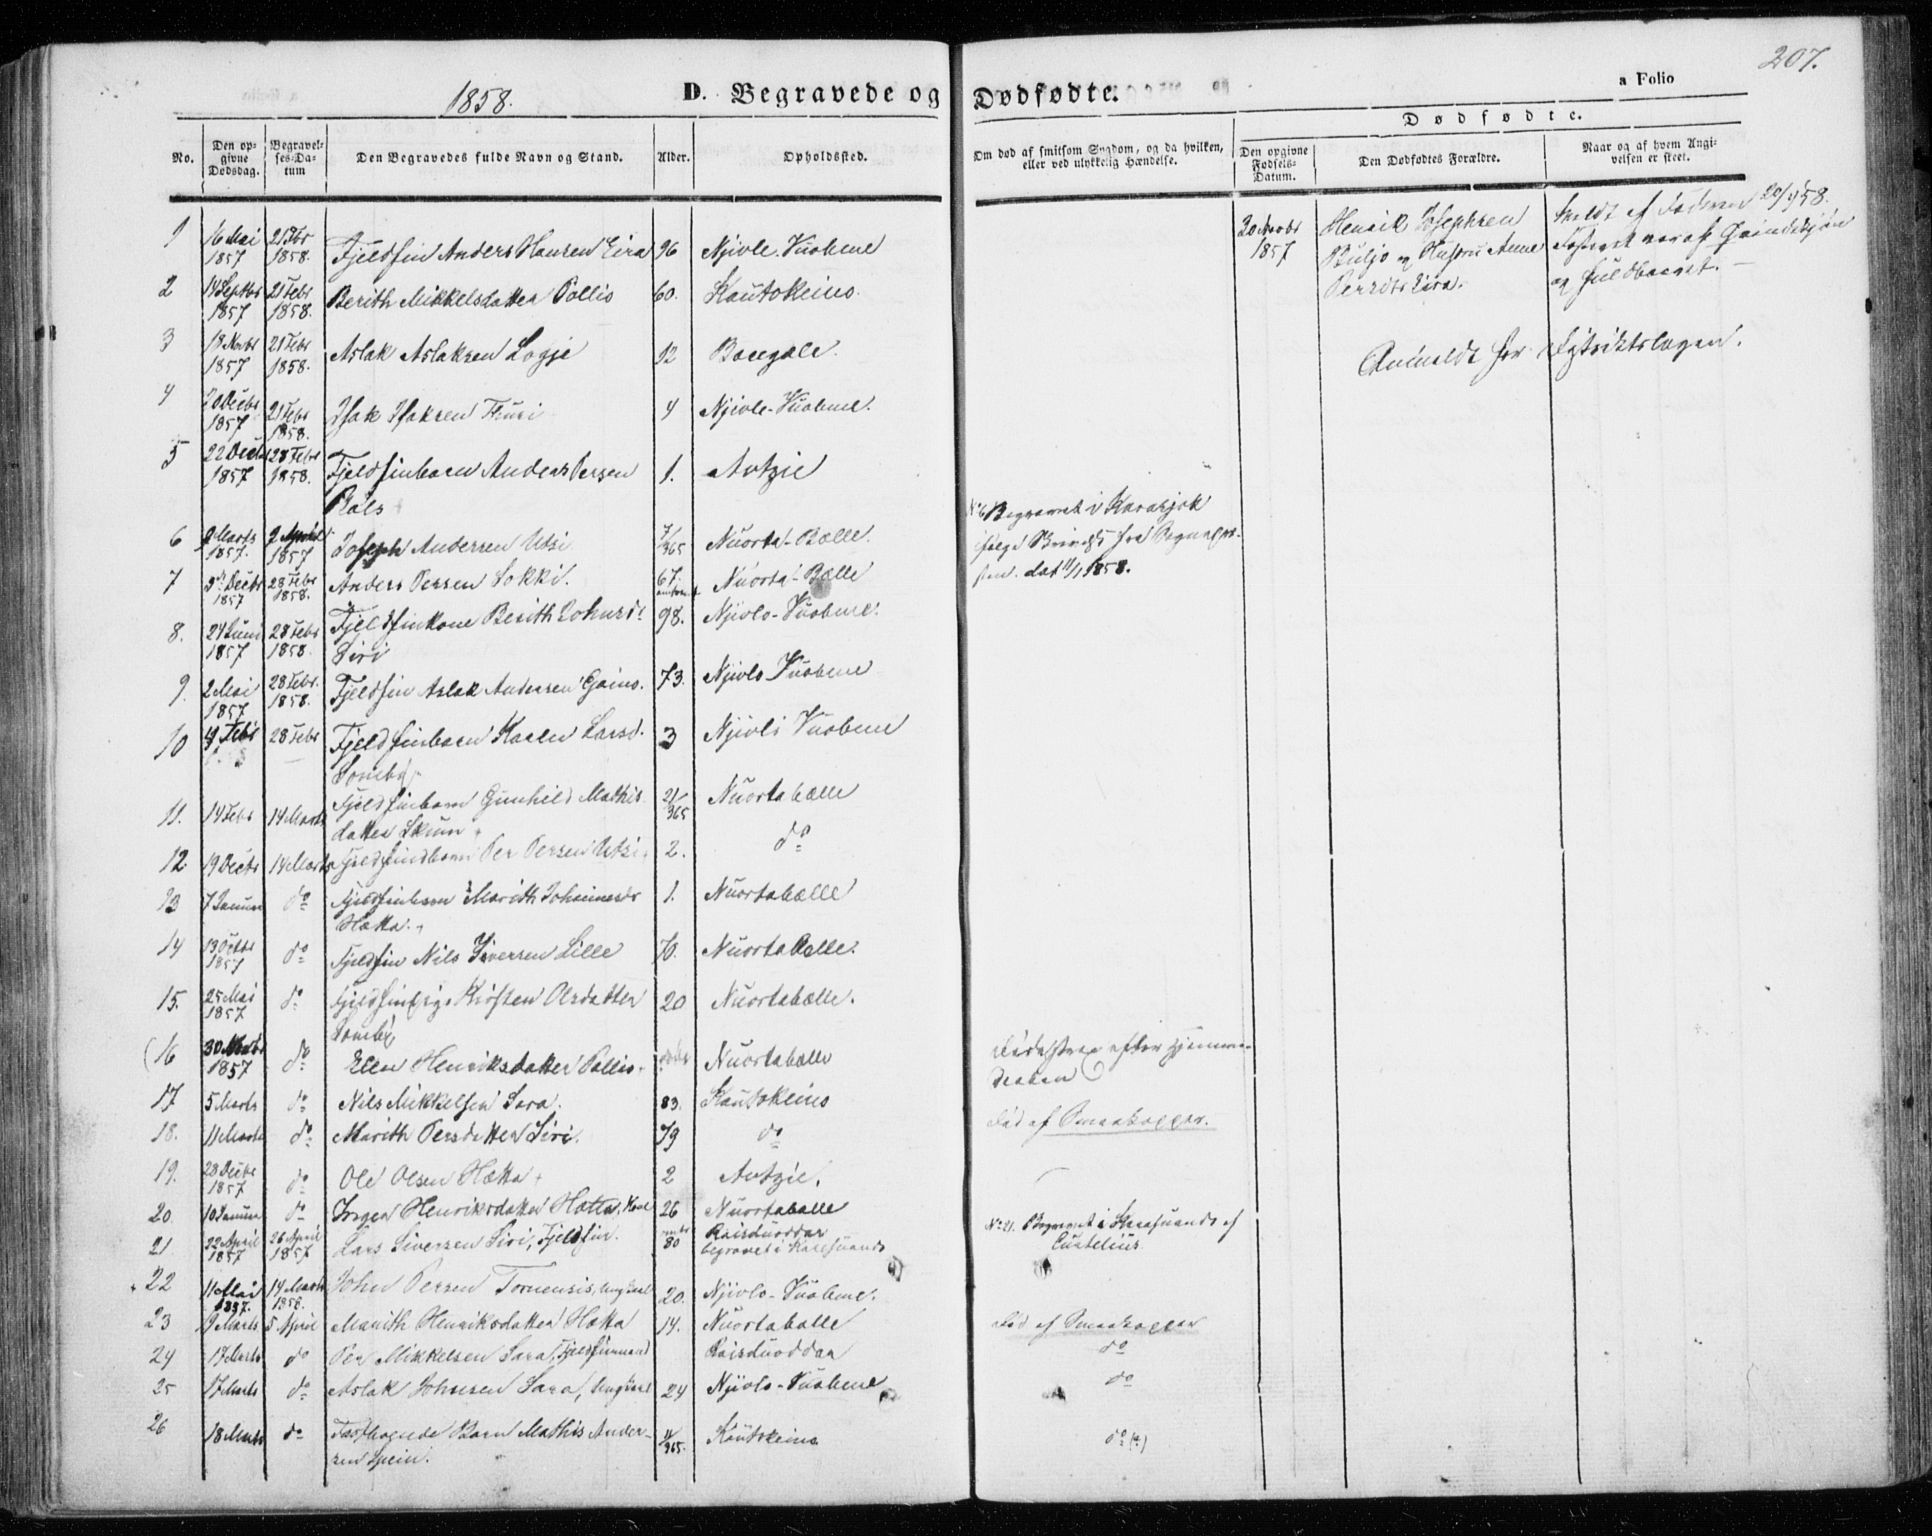 207.
1858.
D. Begravede og Dødfødte.
a Folio
No.
Den op-
givne
Dødsdag.
Begravel-
ses-Da-
tum
Den Begravedes fulde Navn og Stand.
Alder.
Opholdssted.
Om død af smitsom Sygdom, og da hvilken,
eller ved ulykkelig Hændelse.
Dødfødte.
Den opgivne
Fødsels-
Datum.
Den Dødfødtes Forældre.
Naar og af hvem Angi-
velsen er skeet.
1 16 Mai 1857 21 Febr 1858. Fjeldfin Anders Hansen Eira 96 Njivle-Vuobme
2 14 Septbr 1857 21 Febr 1858. Berith Mikkelsdatter Pollis 60. Kautokeino.
3 18 Novbr 1857 21 Febr 1858. Aslak Aslaksen Logje 12
4 20 Decbr 1857 21 Febr 1858. Isak Isaksen Thuri 4 Njivle-Vuobme.
5 22 Decbr 1857 28 Febr 1858. Fjeldfinbarn Anders Persen
Bals
1. Autzie
6 2 Marts 1857. 2 April 1857 Joseph Andersen Utsi 7/365 Nuorta-Bælle.
7 Decbr 1857 28 Febr 1858. Anders Persen Sokki. 67. Nuorta-Bælle
8. 24 Juni 1857 28 Febr 1858. Fjeldfinkone Berith Johnsd.
Siri
98. Njivlo-Vuobme.
9. 2 Mai 1857 28 Febr. 1858. Fjeldfin Aslak Andersen Gaino. 73. Njivlo Vuobme
10 4 Febr 28 Febr Fjeldfinbarn Karen Larsd.
Somby
3 Njivli Vuobme
11. 14 Febr 14 Marts Fjeldfinbarn Gunhild Mathis
datter Skum
21/365 Nuortabælle
12 19 Decbr 14 Marts Fjeldfindbarn Per Persen Utsi. 2. do
13 7 Januar do Fjeldfinbarn Marith Johannesdr
Hætta.
1. Nuortabælle
14 13 Octbr 1857 do Fjeldfin Nils Iversen Lille 70. Nuortabælle.
15. 25 Mai 1857 do Fjeldfinpige Kirsten Olsdatter
Somby
20 Nuortabælle.
16 30 Novbr 1857 do Ellen Henriksdatter Pollis. Nuortabælle
17 5 Marts do Nils Mikkelsen Sara. 83. Kautokeino
18. 11 Marts do Marith Persdatter Siri. 79 do
19. 28 Decbr 1857 do Ole Olsen Hætta 2 Autzie.
20 10 Januar do Inger Henriksdatter Hætta, Kone 26 Nuortabælle
21 22 April 1857 26 April 1857 Lars Siversen Siri, Fjeldfin. 80 Raisduoddar
begravet i Karesuando
22 11 Mai 1857. 14 Marts 1858. John Persen Tornensis, Ungkarl 20. Njivlo-Vuobme.
23 9 Marts 5 April Marith Henriksdatter Hætta 14. Nuortabælle
24 17 Marts do Per Mikkelsen Sara, Fjeldfinmand Raisduoddar
25 17 Marts do Aslak Johnsen Sara, Ungkarl 24 Njivlo-Vuobme
26 18 Marts do Fastboende Barn Mathis Ander-
sen
11/365. Kautokeino
No 6 Begravet i Karasjok
ifølge fra Sogneprs-
ten. dat 11/1 1858.
efter Hjemme-
daaben
Død af Smaakopper.
No 21. Begravet i Karesuando af
Død af Smaakopper
do
do
do (?)
20 Novbr
1857
Henrik Josephsen
Buljo og Hustru Anne
Persdtr Eira.
Meldt af Faderen 20/4 58.
Fosteret var af Qvindekjøn
og fuldbaaret.
Anmeldt for Distriktslægen.